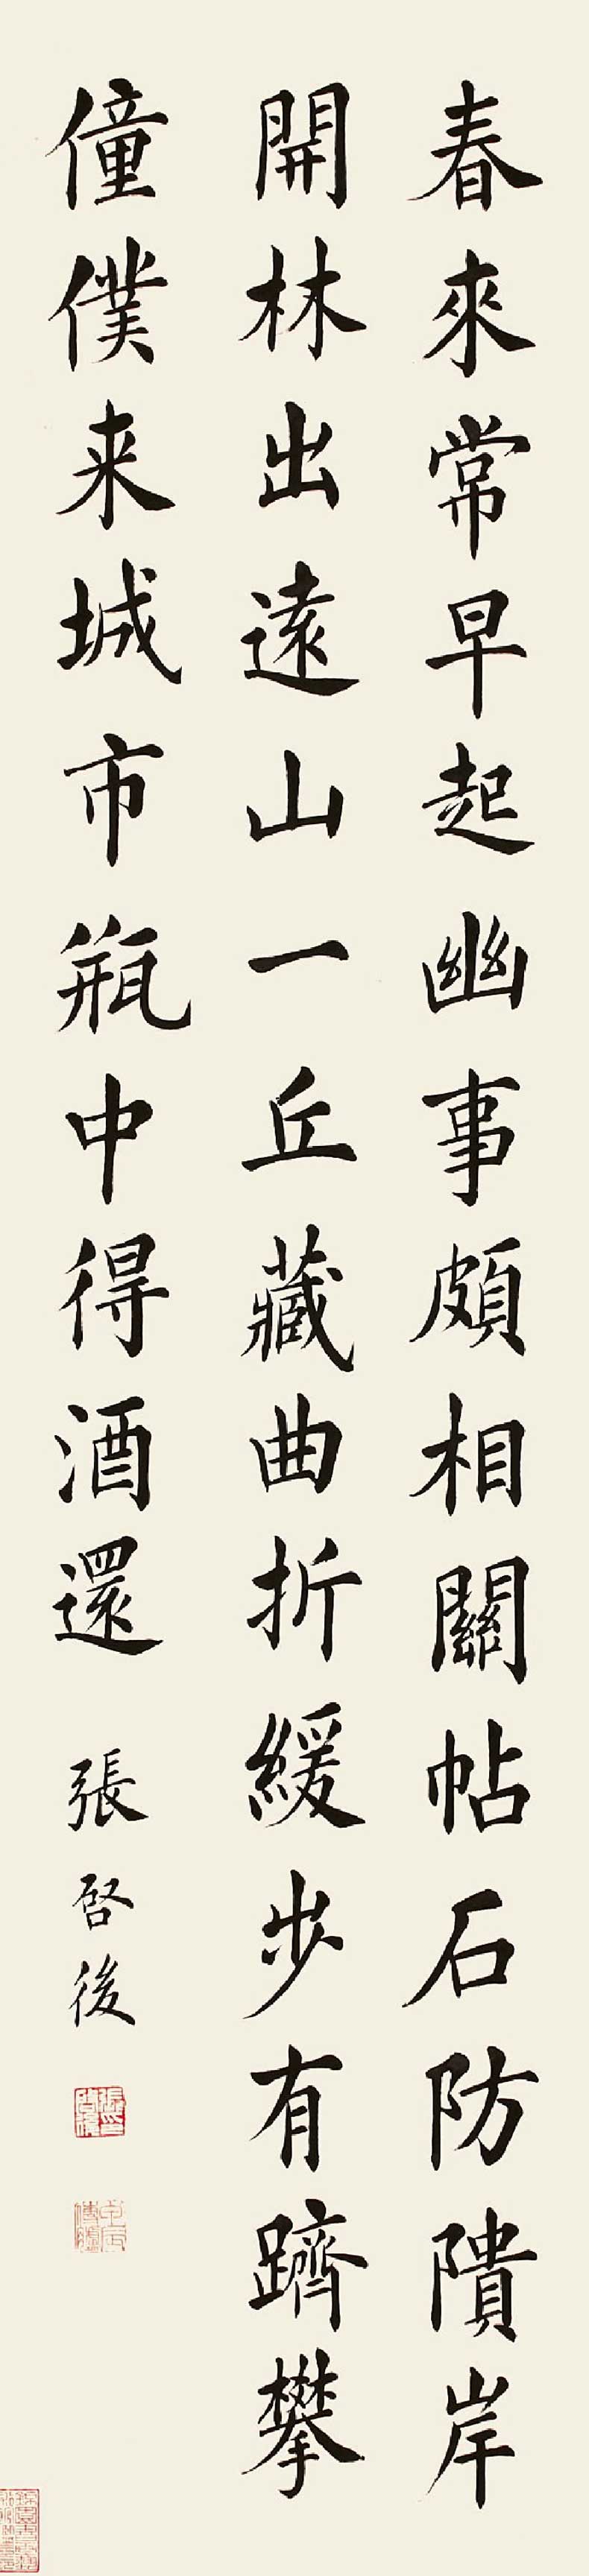 春來常早起幽事頗相關帖石防隤岸
開林出遠山一丘藏曲折緩步有躋攀
僮僕来城市瓶中得酒還
張啓後
張啓後印
甲辰傳臚